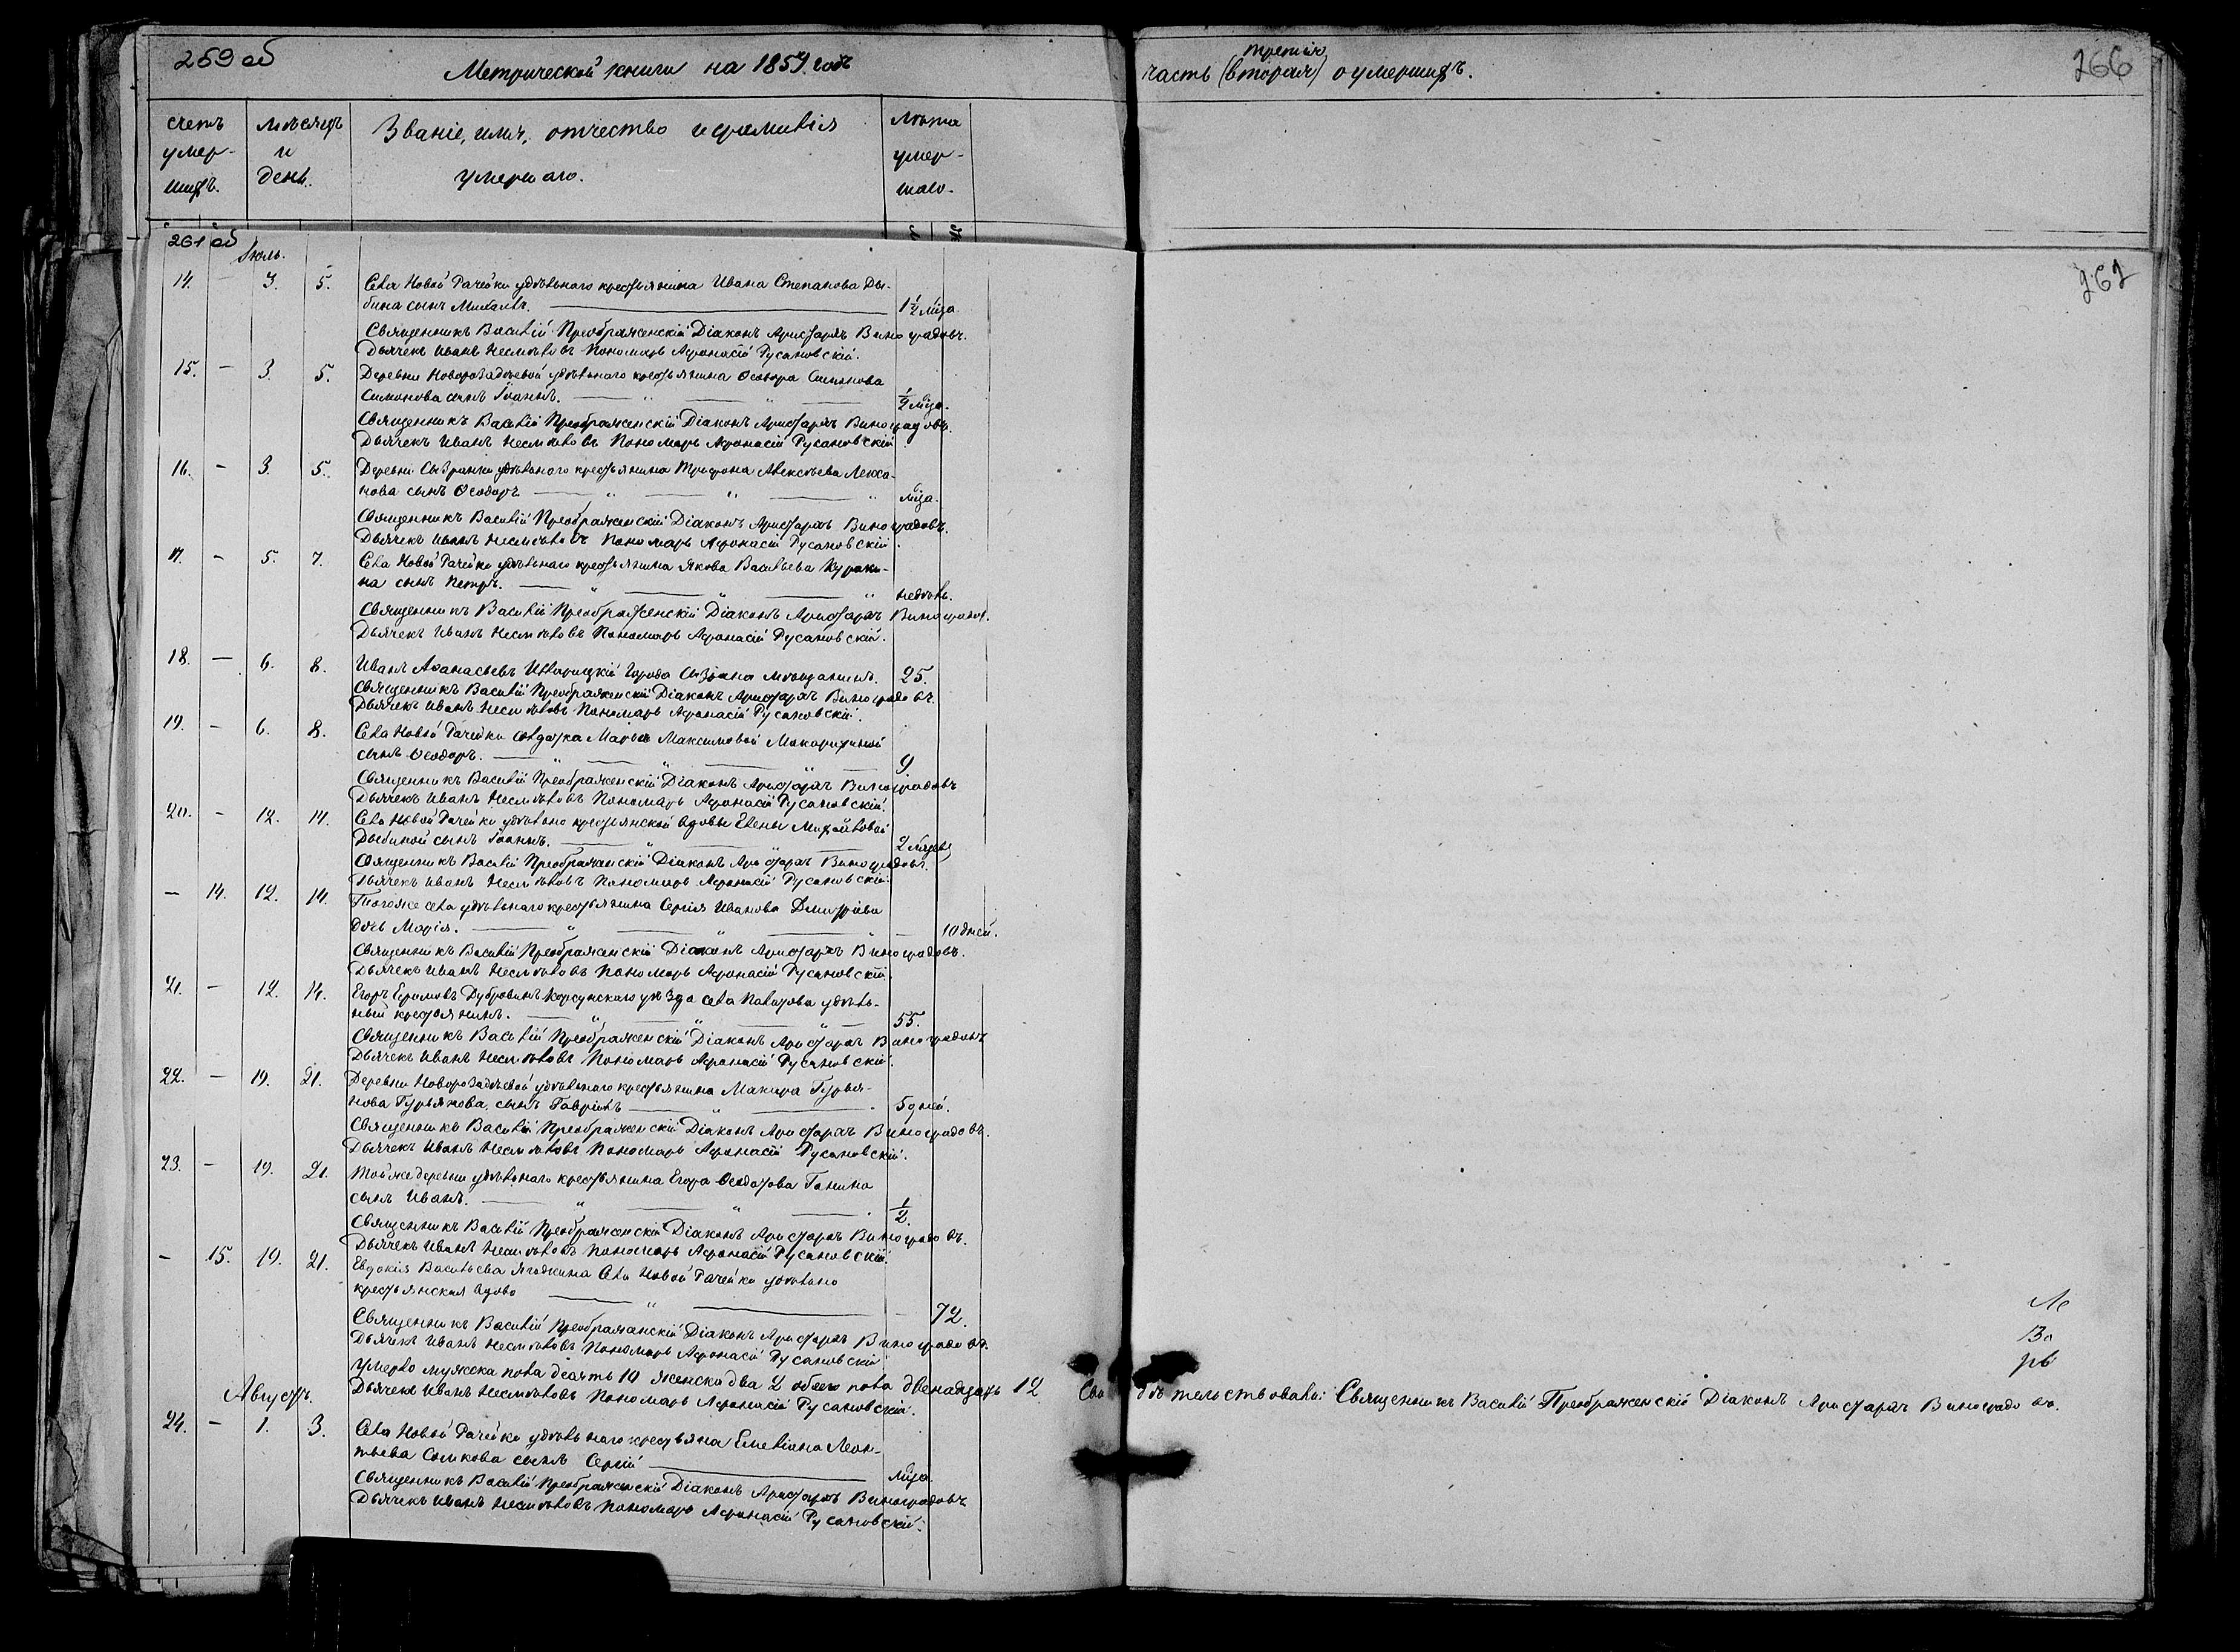 259 об
Метрической книги на 1859 годъ
третія
часть (вторая) о умершихъ.
266
счетъ умер-шихъ.
мѣсяцъ и день.
Званіе, имя, отчество и фамилія
умершаго.
Лѣта умер-шаго.
261 об
262
Іюль.
14. — 3. 5. Села Новой Рачейки удѣльнаго крестьянина Ивана Степанова Ды-
бина сынъ Михаилъ. 1 1/2 м͠ца.
Священникъ Василій Преображенскій Діаконъ Аристархъ Виноградовъ.
Дьячекъ Иванъ Несмѣловъ Пономарь Афонасій Русановскій.
15. — 3. 5. Деревни Новорозадѣевой удѣльнаго крестьянина Ѳеодора Симонова
Симонова сынъ Іоаннъ. — „ — „ — 1/2 м͠ца.
Священникъ Василій Преображенскій Діаконъ Аристархъ Виноградовъ.
Дьячекъ Иванъ Несмѣловъ Пономарь Афонасій Русановскій.
16. — 3. 5. Деревни Сызранки удѣльнаго крестьянина Трифона Алексѣева Лекса-
нова сынъ Ѳеодоръ — „ — „ — „ м͠ца.
Священникъ Василій Преображенскій Діаконъ Аристархъ Виноградовъ.
Дьячекъ Иванъ Несмѣловъ Пономарь Афонасій Русановскій.
17. — 5. 7. Села Новой Рачейки удѣльнаго крестьянина Якова Васильева Кураки-
на сынъ Петръ. — „ — „ — „ недѣль.
Священникъ Василій Преображенскій Діаконъ Аристархъ Виноградов.
Дьячекъ Иванъ Несмѣловъ Пономарь Афонасій Русановскій.
18. — 6. 8. Иванъ Аѳанасьевъ Города Сызрана мѣщанинъ. 25.
Священникъ Василій Преображенскій Діаконъ Аристархъ Виноградовъ.
Дьячекъ Иванъ Несмѣловъ Пономарь Афонасій Русановскій.
19. — 6. 8. Села Новой Рачейки солдатка Марьи Максимовой Макарихиной
сынъ Ѳеодоръ. — „ — „ — „ — 9.
Священникъ Василій Преображенскій Діаконъ Аристархъ Виноградовъ
Дьячекъ Иванъ Несмѣловъ Пономарь Афонасій Русановскій.
20. — 12. 14. Села Новой Рачейки удѣльно крестьянской вдовы Елены Михайловой
Дыбиной сынъ Іоаннъ. — „ — „ — 2 мѣсяцевъ
Священникъ Василій Преображенскій Діаконъ Аристархъ Виноградовъ.
Дьячекъ Иванъ Несмѣловъ Пономарь Афонасій Русановскій.
— 14. 12. 14. Тогоже села удѣльнаго крестьянина Сергія Иванова Дмитріева
дочь Марія. — „ — „ — „ — 10 дней.
Священникъ Василій Преображенскій Діаконъ Аристархъ Виноградовъ.
Дьячекъ Иванъ Несмѣловъ Пономарь Афонасій Русановскій.
21. — 12. 14. Егоръ Ефимовъ Дубровинъ Корсунскаго уѣзда села удѣль-
ный крестьянинъ. — „ — „ — „ — 55.
Священникъ Василій Преображенскій Діаконъ Аристархъ Виноградовъ
Дьячекъ Иванъ Несмѣловъ Пономарь Афонасій Русановскій.
22. — 19. 21. Деревни Новорозадѣевой удѣльнаго крестьянина Макара Гурья-
нова Гурьянова, сынъ Гавріилъ — „ — 5 дней.
Священникъ Василій Преображенскій Діаконъ Аристархъ Виноградовъ.
Дьячекъ Иванъ Несмѣловъ Пономарь Афонасій Русановскій.
23. — 19. 21. Тойже деревни удѣльнаго крестьянина Егора Ѳедотова Ганина
сынъ Иванъ. — „ — „ — 1/2.
Священникъ Василій Преображенскій Діаконъ Аристархъ Виноградовъ.
Дьячекъ Иванъ Несмѣловъ Пономарь Афонасій Русановскій.
— 15. 19. 21. Евдокія Васильева Ягодкина Села Новой Рачейки удѣльно
крестьянская вдова — „ — 72.
Священникъ Василій Преображенскій Діаконъ Аристархъ Виноградовъ.
Дьячекъ Иванъ Несмѣловъ Пономарь Афонасій Русановскій
умерло мужеска пола десять 10 женска два 2 обоего пола двенадцать 12 Свидѣтельствовали: Священникъ Василій Преображенскій Діаконъ Аристархъ Виноградовъ.
Дьячекъ Иванъ Несмѣловъ Пономарь Афонасій Русановскій.
Августъ.
24. — 1. 3. Села Новой Рачейки удѣльнаго крестьяна Емеліана Леон-
тьева Сомкова сынъ Сергій — м͠ца.
Священникъ Василій Преображенскій Діаконъ Аристархъ Виноградовъ
Дьячекъ Иванъ Несмѣловъ Пономарь Афонасій Русановскій.